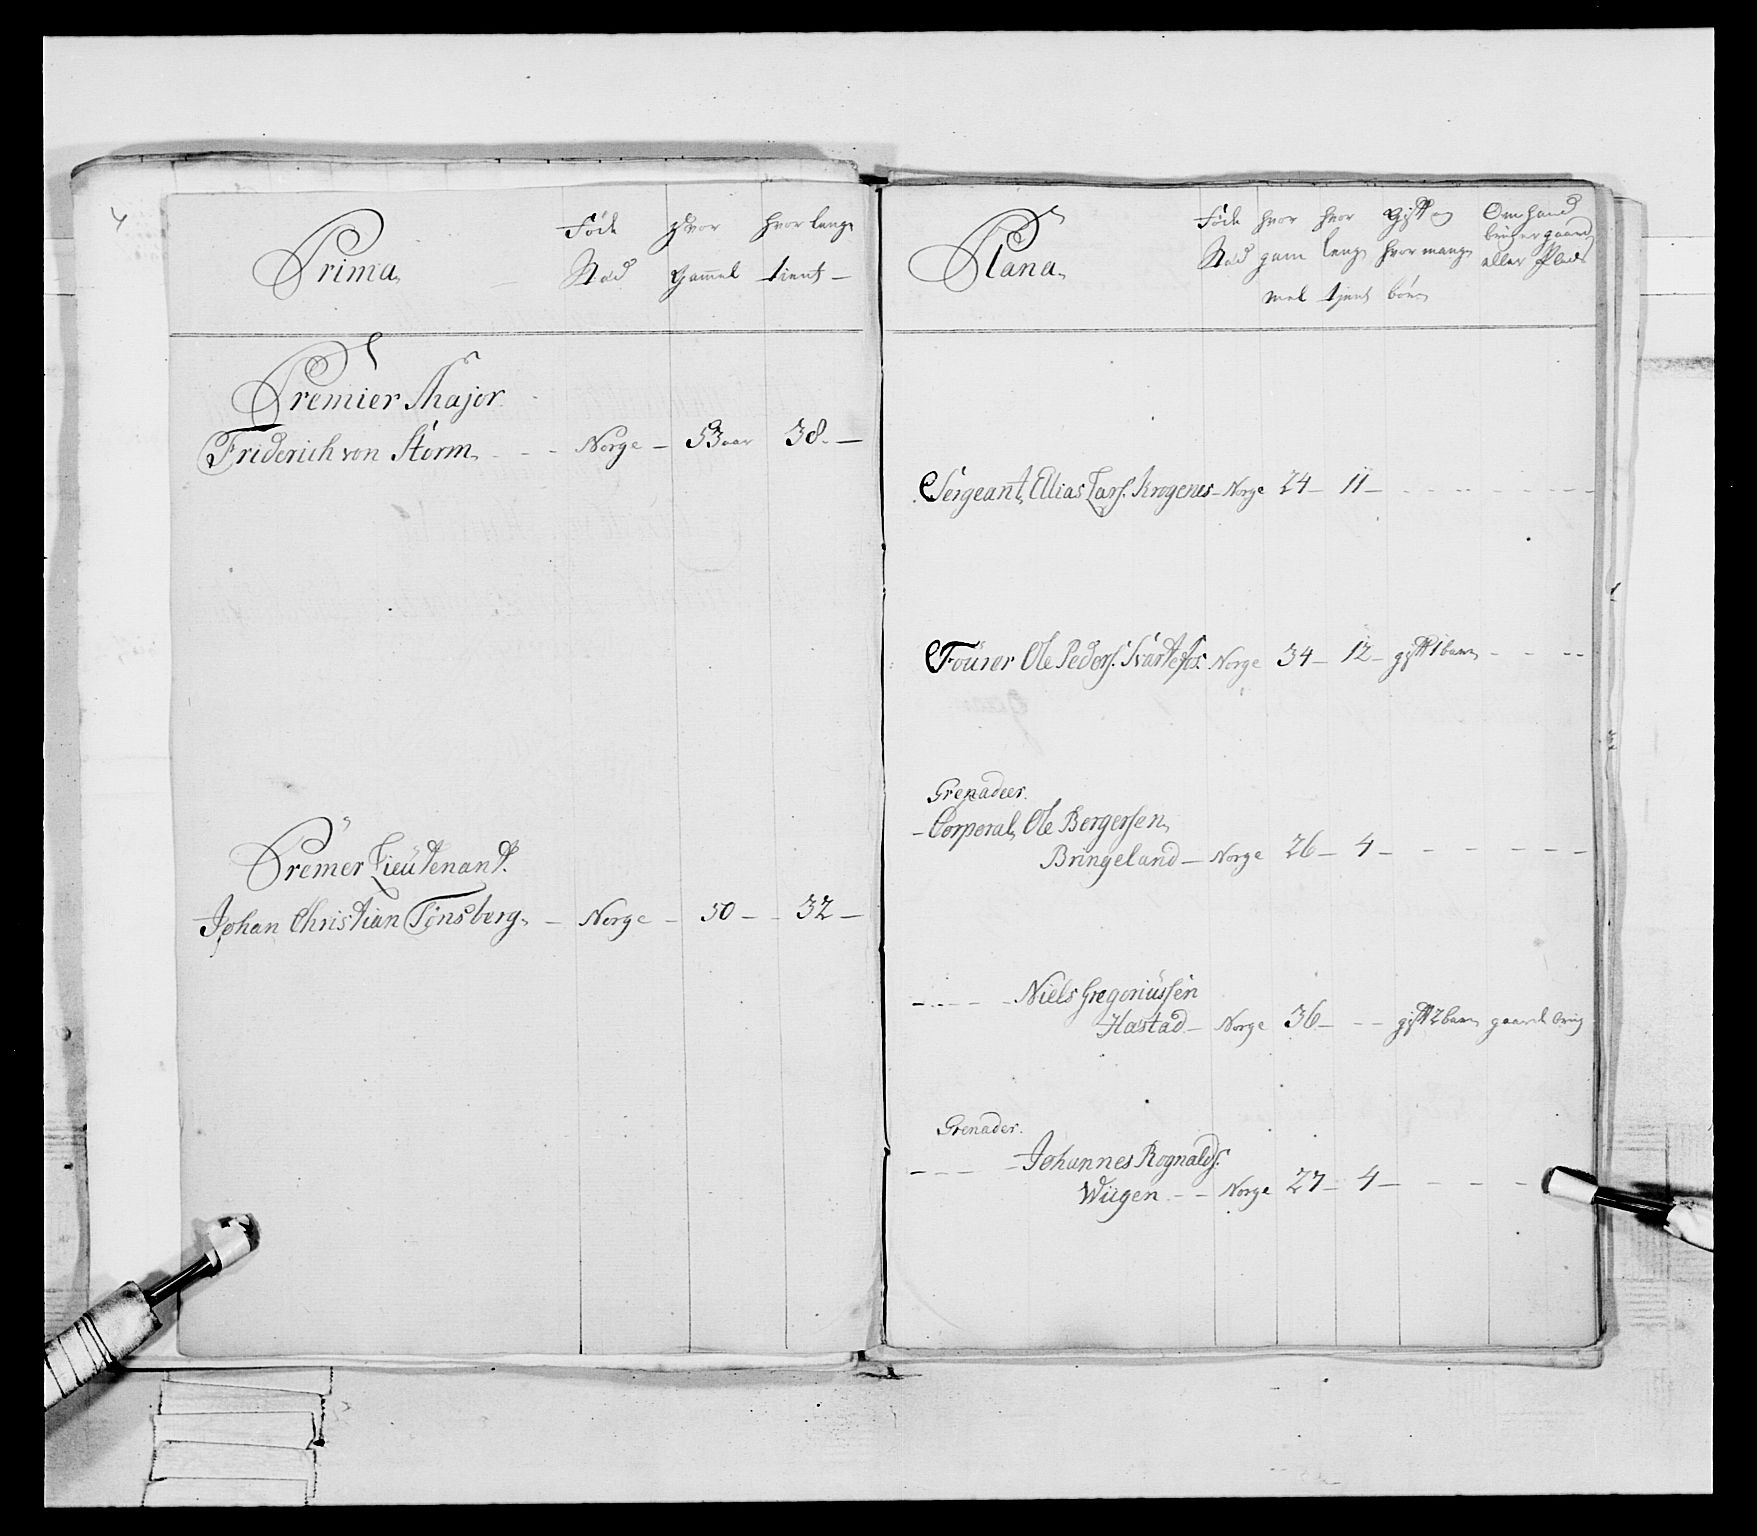 4
Prima, Føde hvor hvor lenge
Stæd Gammel tient —
Premier Major
Friderich von Storm, - - - Norge — 53 aar 38. —
Premer Lieutenant.
Johan Christian Tønsberg, — Norge — 50 — - 32 —
Plana, Føde hvor hvor Gift og Om hand
Stæd gam lenge hvor mange bruger gaard
mel tjent børn eller Plads
Sergeant, Ellias Lars: Krogenes — Norge 24 — 11 — - - - - - - - -
Fourer Ole Peders: Svartefos Norge 34 — 12 — gift 1 barn - - - -
Grenadeer.
- Corporal, Ole Bergersen,
Bringeland — Norge 26 — 4 — - - - - - -
- - - - - Niels Gregoriussen
Hastad — Norge 36 — - - gift 2 barn gaard brug
Grenader.
- - - - - Johannes Rognalds:
Wiigen - - Norge 27 — 4 — - - - -